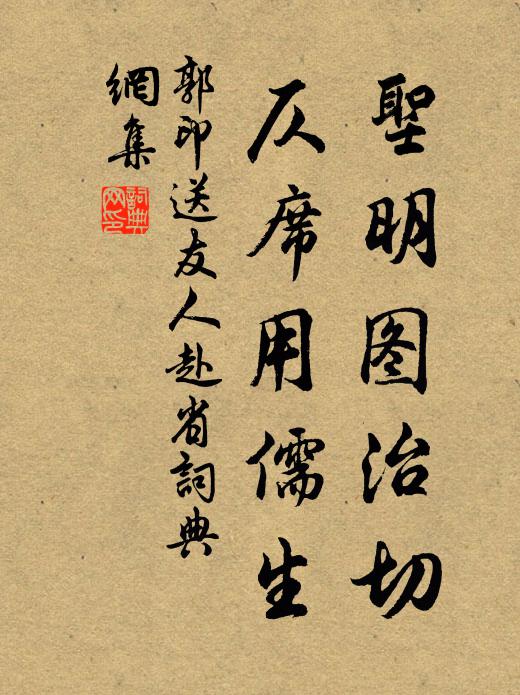 聖明图治切
仄席用儒生
郭印送友人赴省詞典
網集
詞典網印